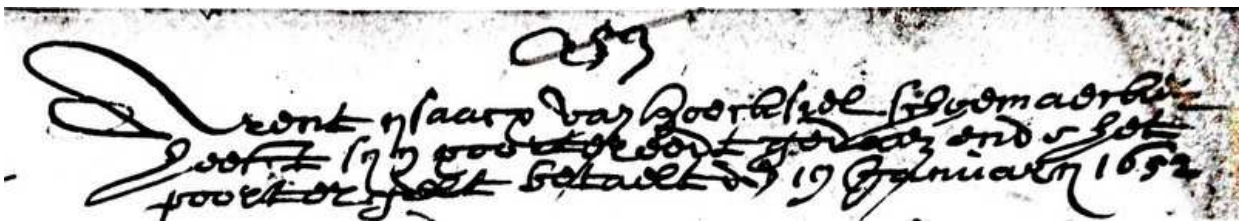 Arent Isaacx van hoecksel schoemaecker
heeft sijn poortereedt gedaen ende het
poortergelt betaelt den 19 Januarij 1652